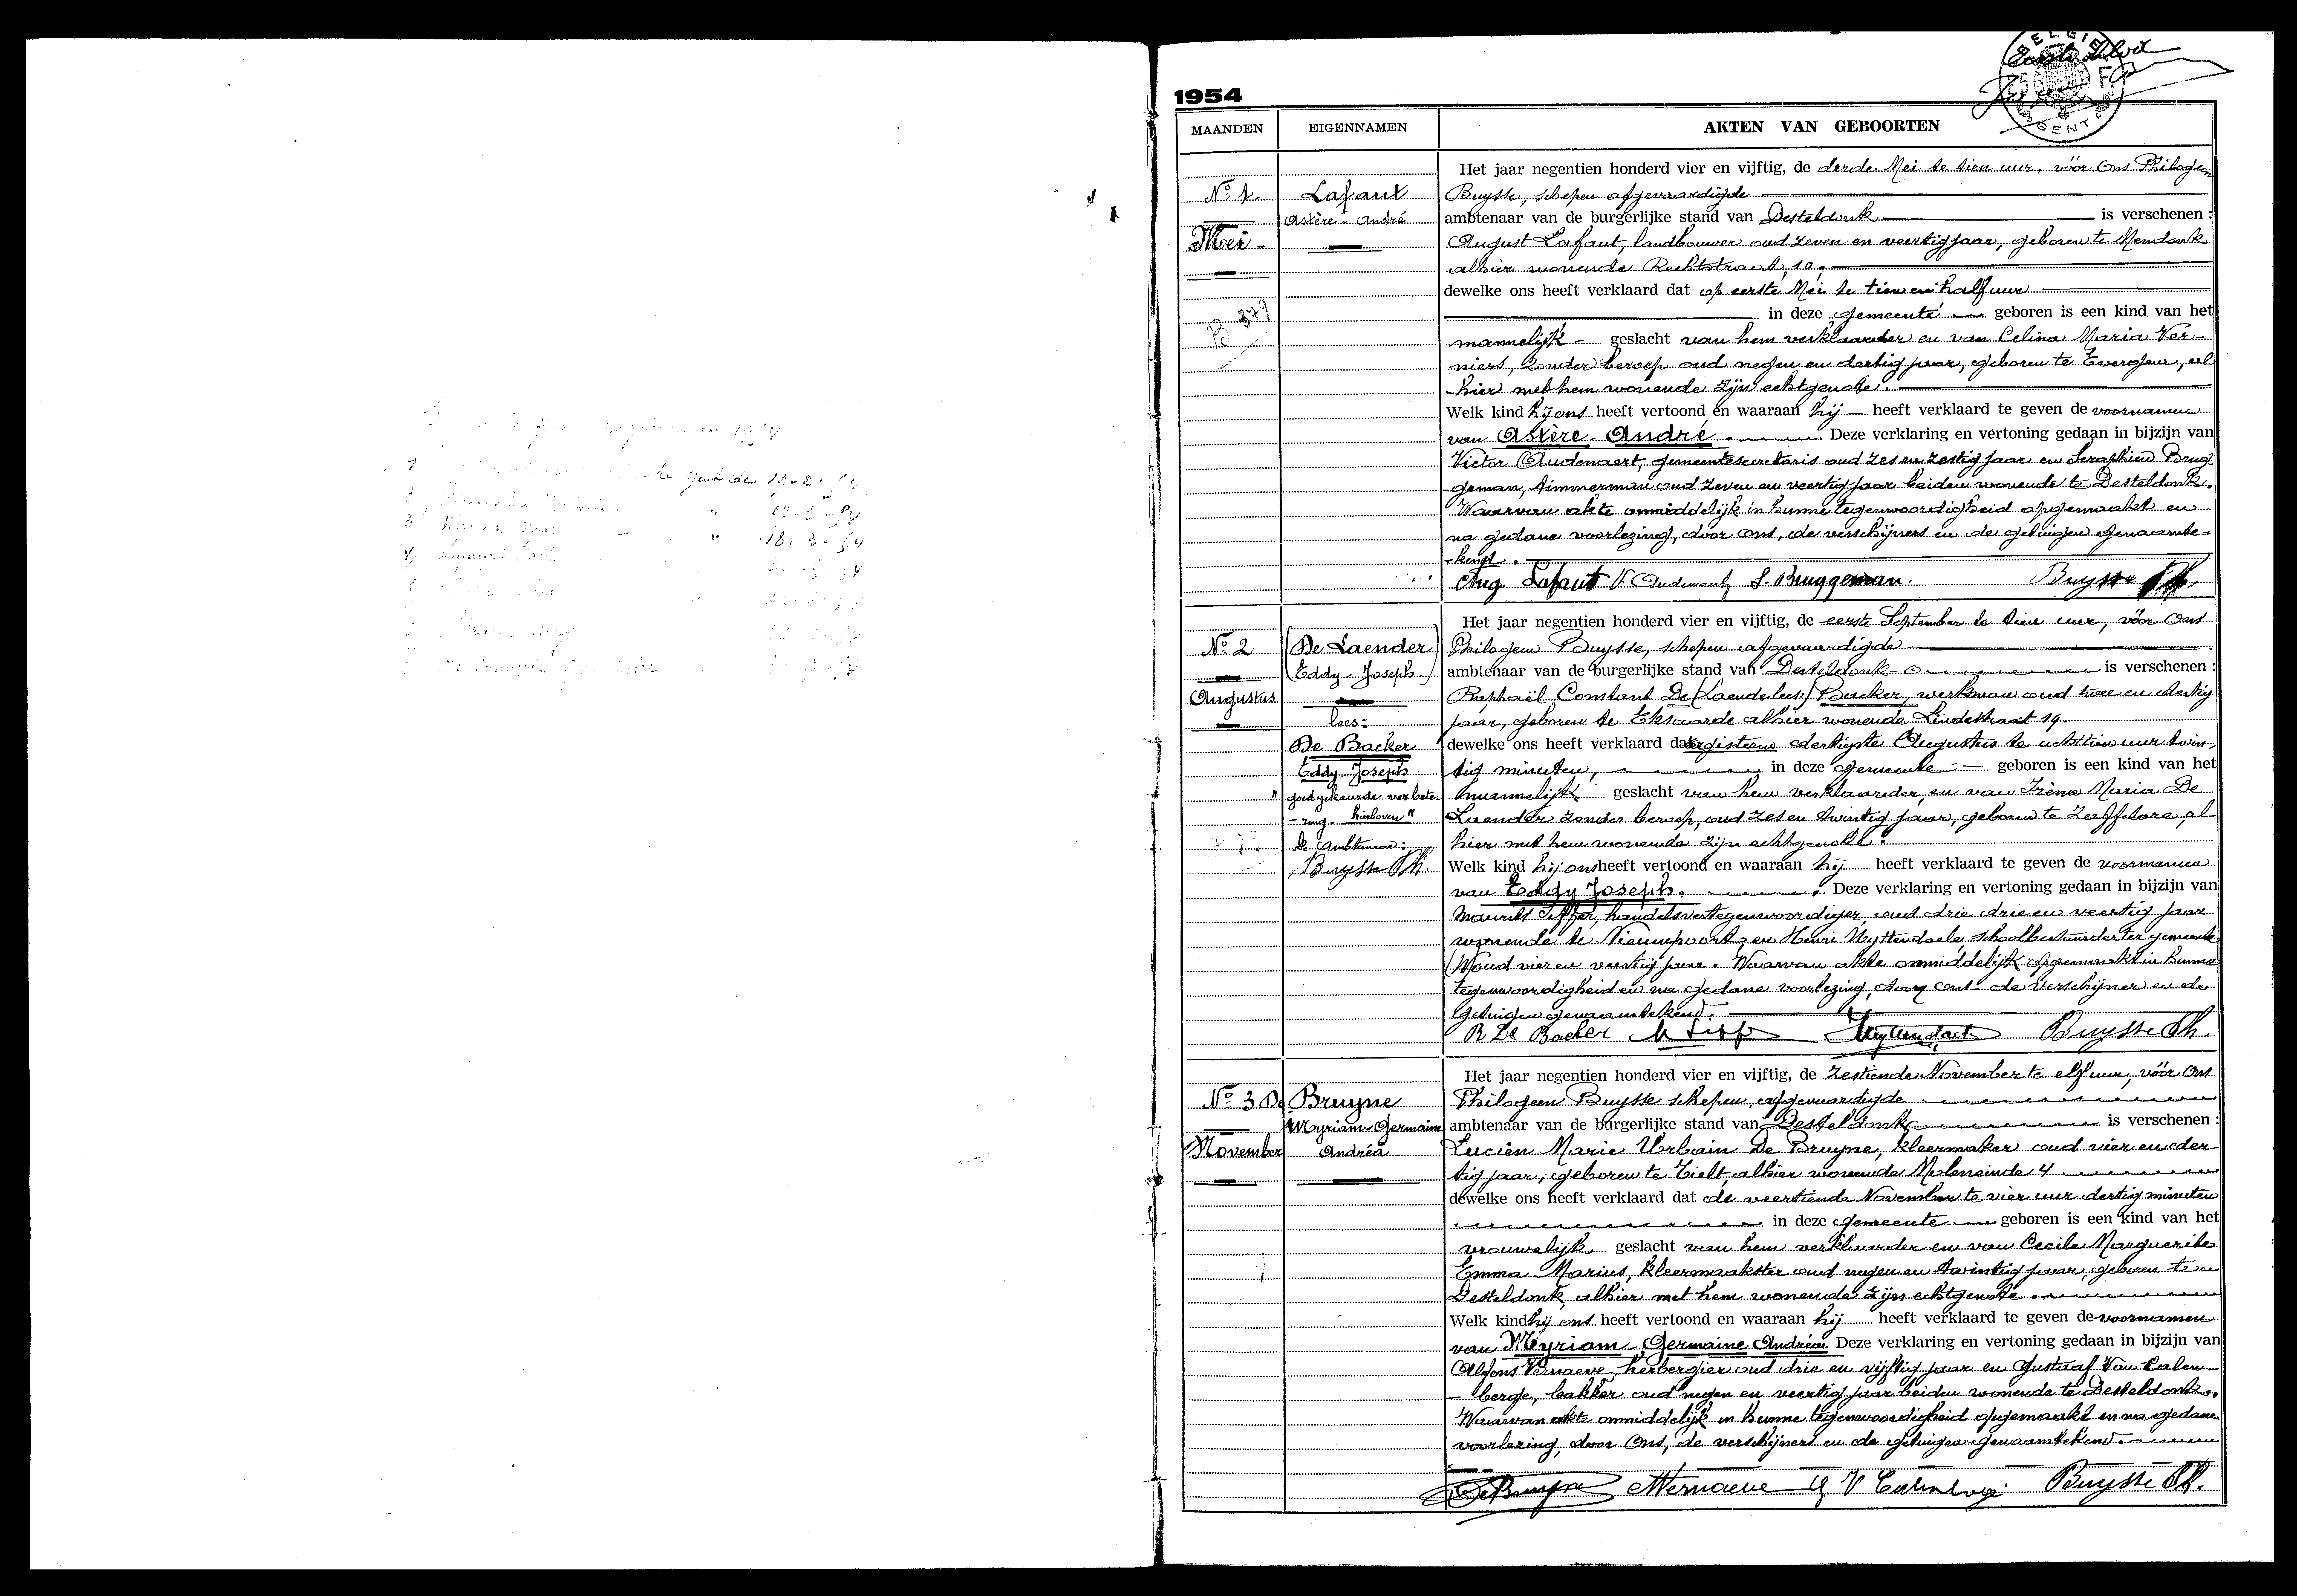 19-2-54
18.3-54
1954
MAANDEN EIGENNAMEN AKTEN VAN GEBOORTEN
BELGIE
GENT
Het jaar negentien honderd vier en vijftig, de derde Mei te tien uur, vóór Ons Philogeen
No. 1. Lafaut Buysse, schepen afgevaardigde
Astère-André ambtenaar van de burgerlijke stand van Desteldonk is verschenen :
Mei August Lafaut, landbouwer oud zeven en veertig jaar, geboren te Mendonk
alhier wonende Rechtstraat, 10,
dewelke ons heeft verklaard dat op eerste Mei te tien en half uur
in deze gemeente geboren is een kind van het
mannelijk geslacht van hem verklaarder en van Celina Maria Ver-
niers, zonder beroep oud negen en dertig jaar, geboren te Evergem, al
-hier met hem wonende zijn echtgenote.
Welk kind hij ons heeft vertoond en waaraan hij heeft verklaard te geven de voornamen
van Astère-André. Deze verklaring en vertoning gedaan in bijzijn van
Victor Audenaert, gemeentesecretaris oud zes en zestig jaar en Seraphien Brug-
geman, timmerman oud zeven en veertig jaar beiden wonende te Desteldonk.
Waarvan akte onmiddelijk in hunne tegenwoordigheid opgemaakt en
na gedane voorlezing, door Ons, de verschijners en de getuigen genaamte-
-kend.
Aug Lafaut V. Audenaert S. Bruggeman. Buysse Ph.
Het jaar negentien honderd vier en vijftig, de eerste September te tien uur, vóór Ons
No. 2 (De Laender Philogeen Buysse, schepen afgevaardigde
Eddy-Joseph) ambtenaar van de burgerlijke stand van Desteldonk is verschenen :
Augustus Raphaël Constant De (Laender lees:) Backer, werkman oud twee en dertig
lees: jaar, geboren te Eksaarde alhier wonende Lindestraat 19.
De Backer dewelke ons heeft verklaard dat eergisteren dertigste Augustus te achttien uur twin-
Eddy Joseph tig minuten, in deze gemeente geboren is een kind van het
"goedgekeurde verbete- mannelijk geslacht van hem verklaarder, en van Iréna Maria De
-ring hierboven" Laender zonder beroep, oud zes en twintig jaar, geboren te Zaffelare, al-
De Ambtenaar: hier met hem wonende zijn echtgenote.
Buysse Ph. Welk kind hij ons heeft vertoond en waaraan hij heeft verklaard te geven de voornamen
van Eddy Joseph. Deze verklaring en vertoning gedaan in bijzijn van
Maurits Siffer, handelsvertegenwoordiger oud drie drie en veertig jaar
wonende te Nieuwpoort, en Henri Uyttendaele schoolbestuurder ter gemeente
oud vier en veertig jaar. Waarvan akte onmiddelijk opgemaakt in hunne
tegenwoordigheid en na gedane voorlezing, door Ons de verschijner en de
getuigen genaamtekend.
R De Backer M Siffer Uyttendaele Buysse Ph.
Het jaar negentien honderd vier en vijftig, de zestiende November te elf uur, vóór Ons
No. 3 De Bruyne Philogeen Buysse schepen, afgevaardigde
Myriam-Germaine ambtenaar van de burgerlijke stand van Desteldonk is verschenen :
November Andréa Lucien Marie Urbain De Bruyne, kleermaker oud vier en der-
tig jaar, geboren te Tielt, alhier wonende Moleneinde 4
dewelke ons heeft verklaard dat de veertiende November te vier uur dertig minuten
in deze gemeente geboren is een kind van het
vrouwelijk geslacht van hem verklaarder en van Cecile Marguerite
Emma Marius, kleermaakster oud negen en twintig jaar, geboren te
Desteldonk, alhier met hem wonende zijn echtgenote.
Welk kind hij ons heeft vertoond en waaraan hij heeft verklaard te geven de voornamen
van Myriam-Germaine Andréa. Deze verklaring en vertoning gedaan in bijzijn van
Alfons Vernaeve, herbergier oud drie en vijftig jaar en Gustaaf Van Calen-
-berge, bakker oud negen en veertig jaar beiden wonende te Desteldonk.
Waarvan akte onmiddelijk in hunne tegenwoordigheid opgemaakt en na gedane
voorlezing, door Ons, de verschijners en de getuigen genaamtekend.
De Bruyne A Vernaeve G V Calenberge Buysse Ph.